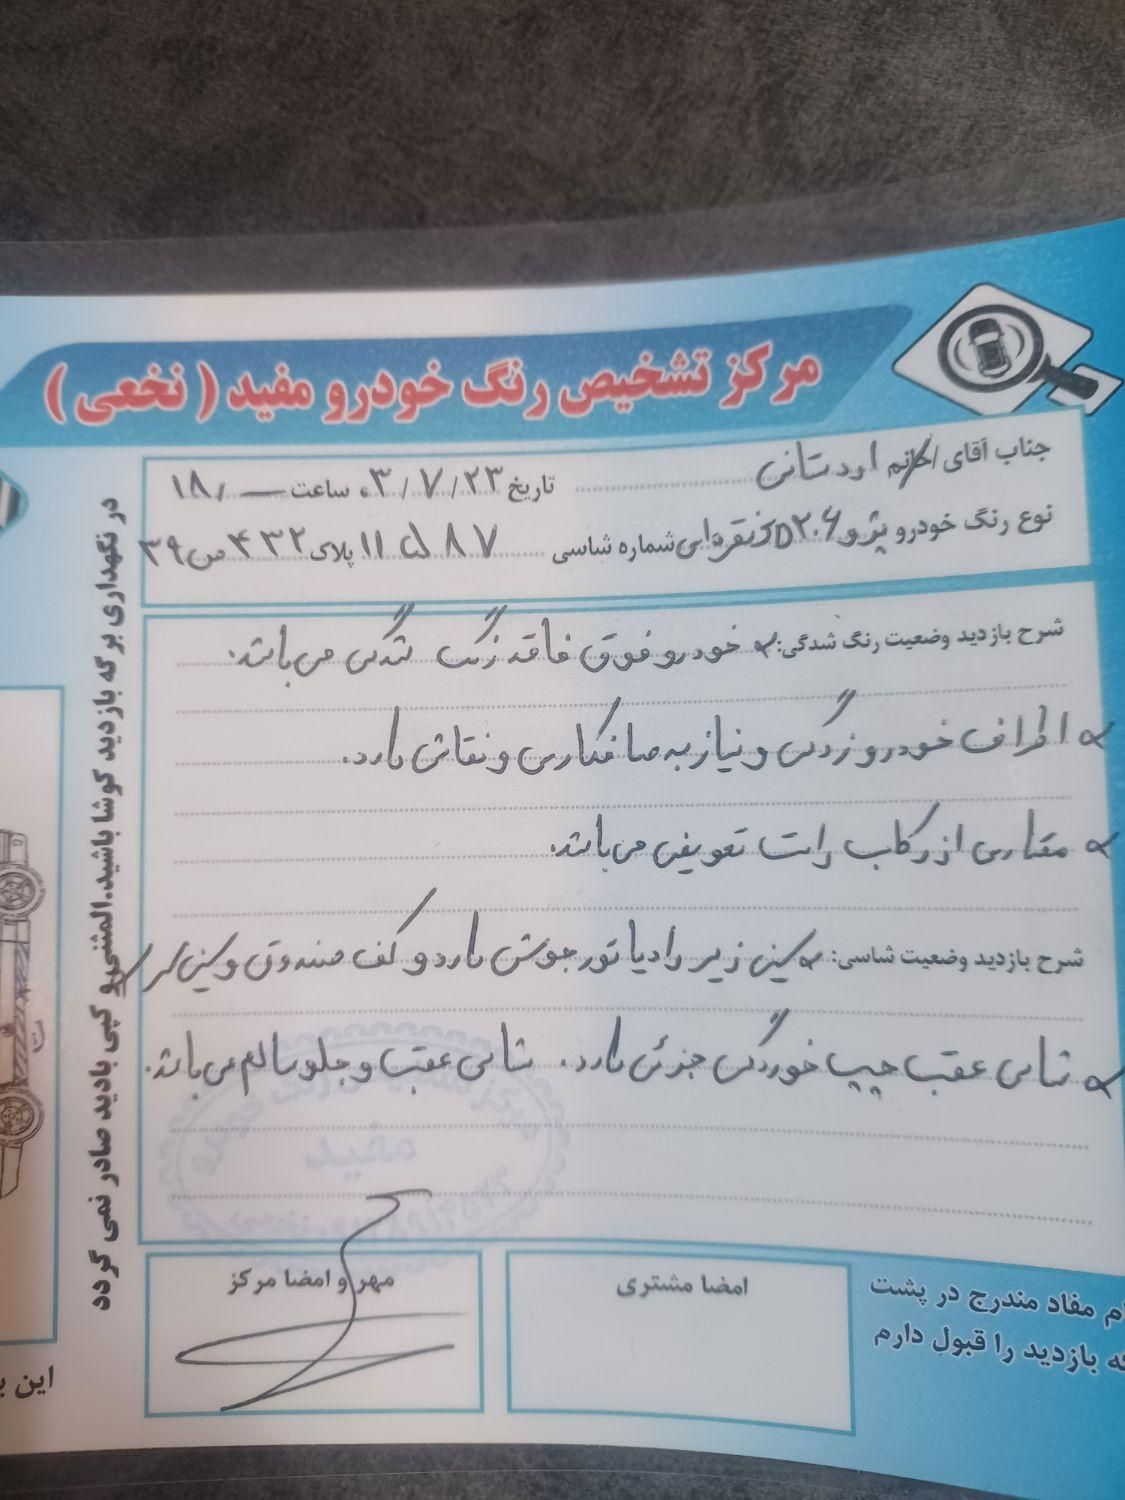 مرکز تشخیص رنگ خودرو مفید ( نخعی )
جناب آقای / خانم اردستانی تاریخ ۰۳/۷/۲۳ ساعت ۱۸/—
نوع رنگ خودرو پژو ۲۰۶ نقره‌ای شماره شاسی ۸۷ پلاک ۴۳۲ ص ۳۹
شرح بازدید وضعیت رنگ شدگی: خودرو فوق فاقد رنگ شدگی می‌باشد.
اطراف خودرو زدگی و نیاز به صافکاری و نقاشی دارد.
مقداری از رکاب راست تعویض می‌باشد.
شرح بازدید وضعیت شاسی: سینی زیر رادیاتور جوش دارد و کف صندوق و سینی
شاسی عقب چپ خوردگی جزئی دارد. شاسی عقب و جلو سالم می‌باشد.
مرکز تشخیص رنگ خودرو
مفید
امضا مشتری
مهر و امضا مرکز
ام مفاد مندرج در پشت
بازدید را قبول دارم
در نگهداری برگه بازدید کوشا باشید.المثنی و کپی بادید صادر نمی گردد
این